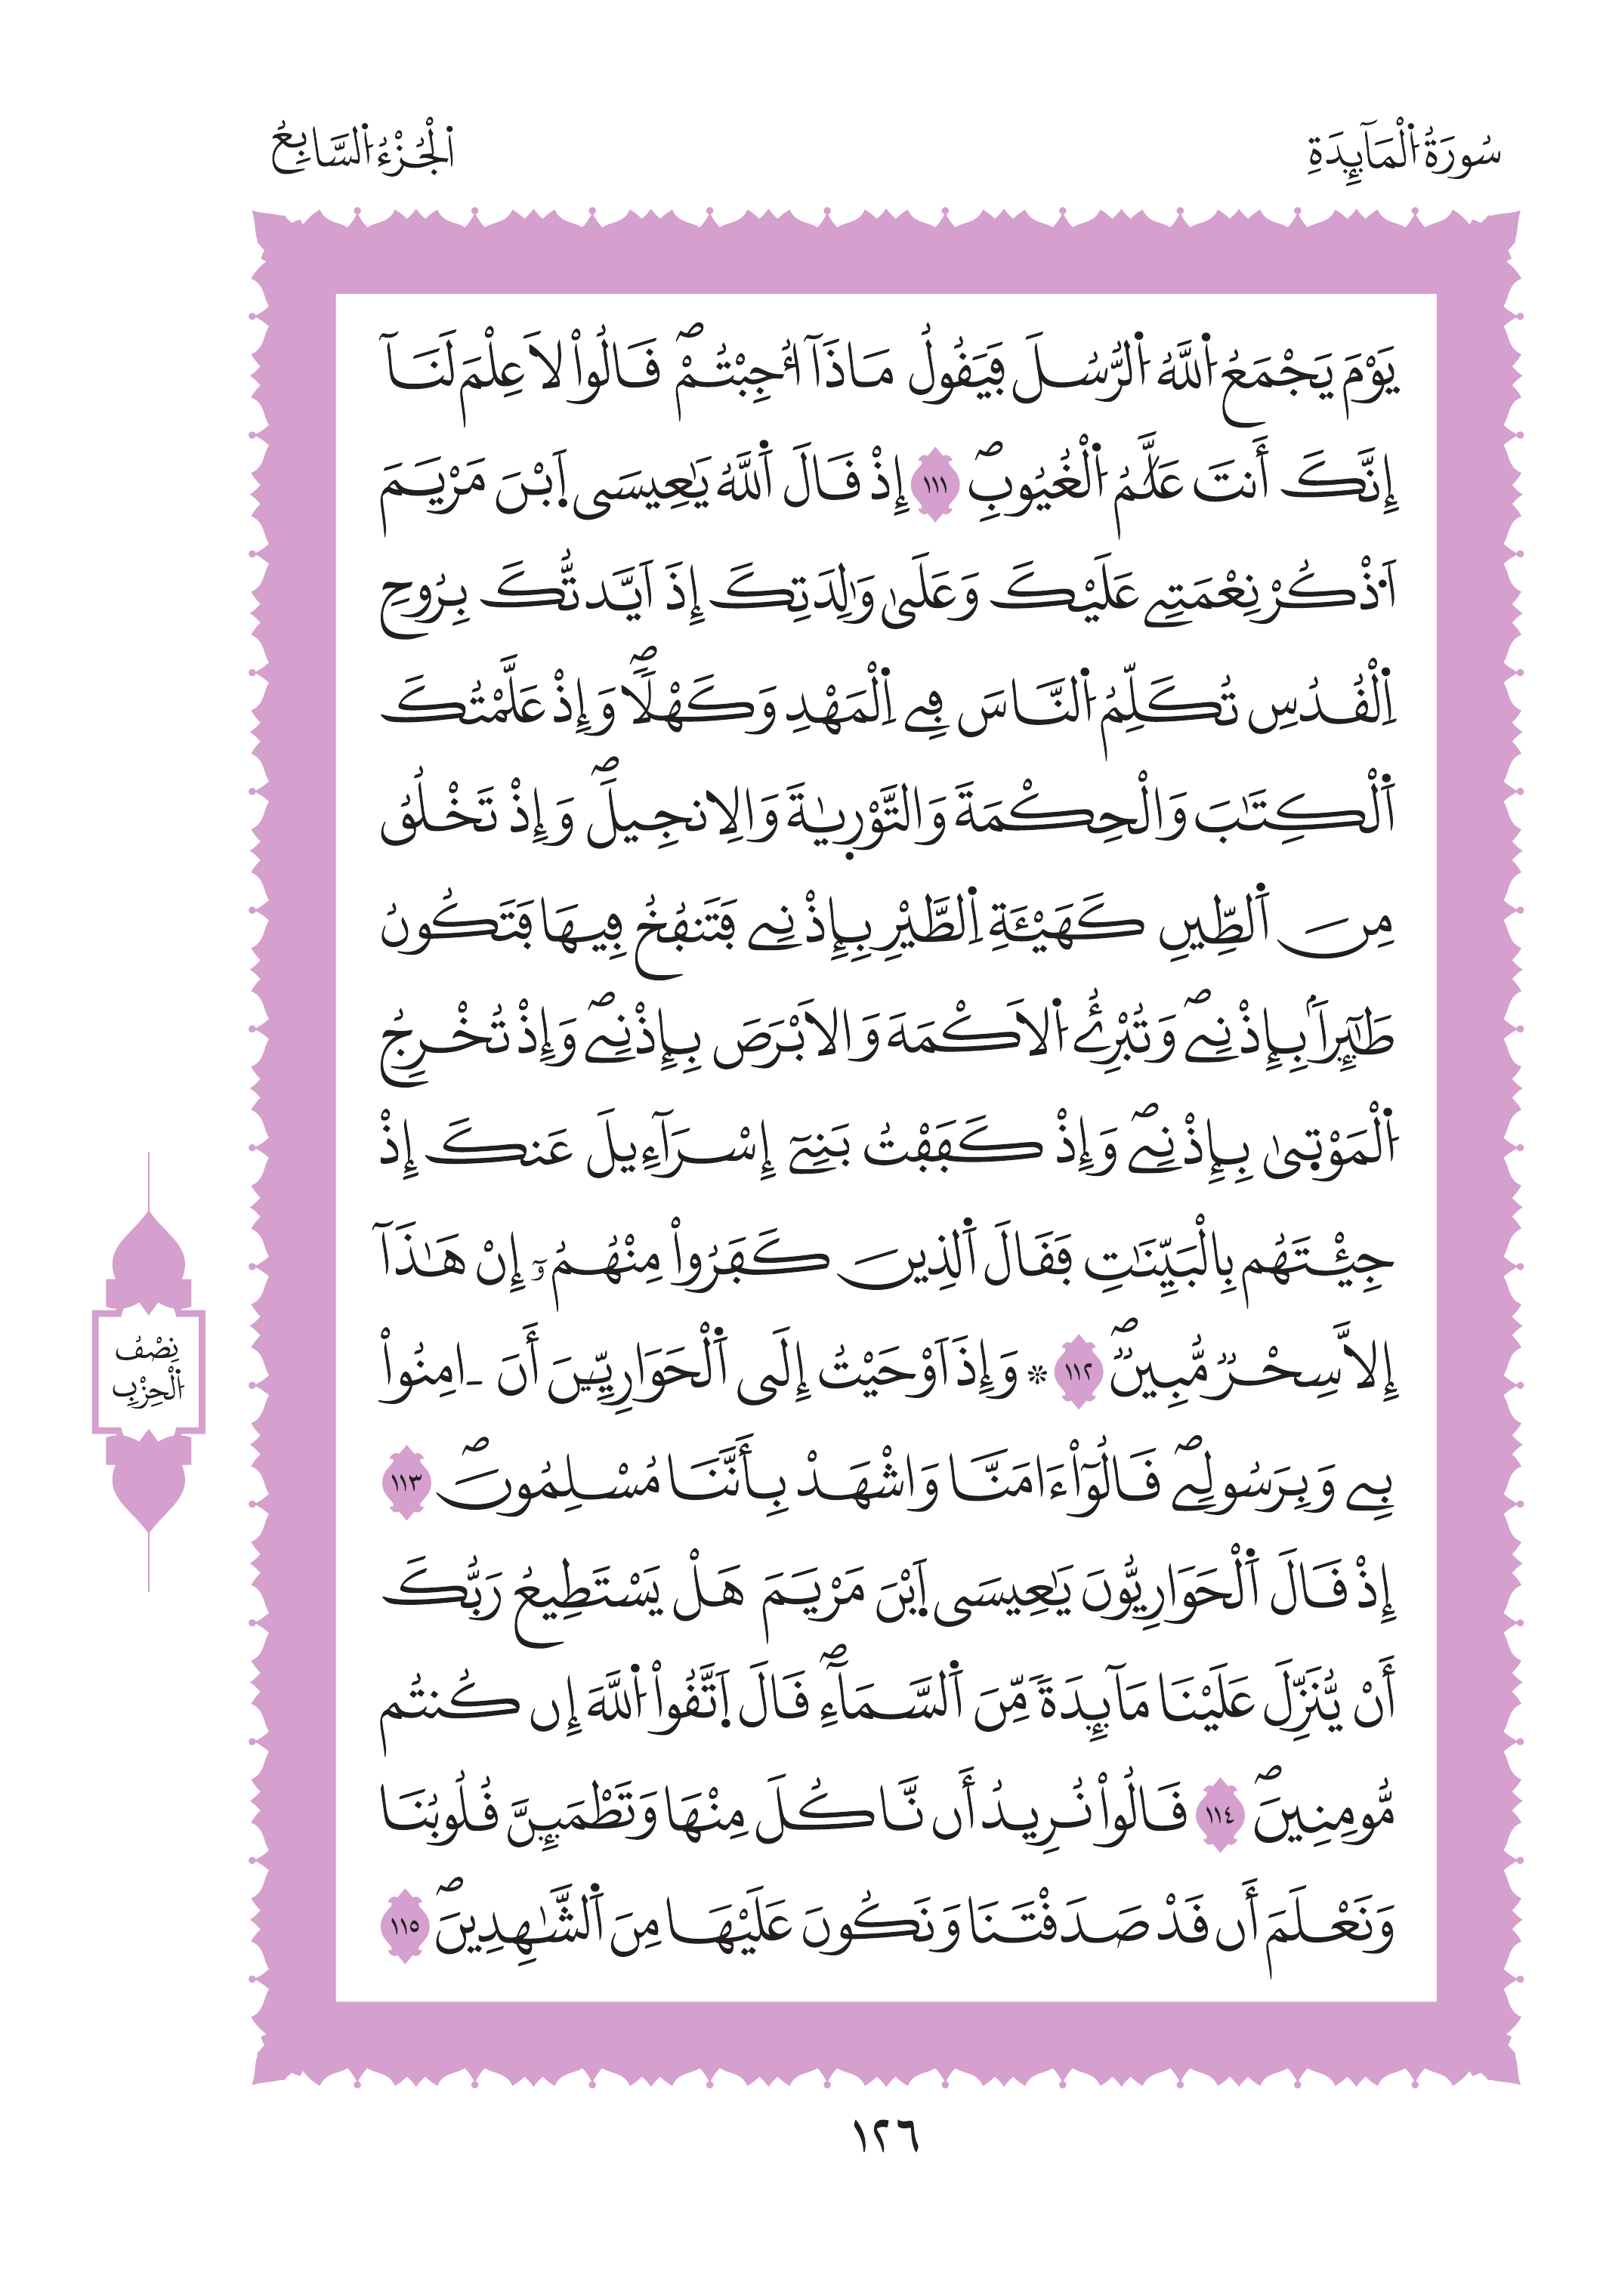 سُورَةُ اُ۬لْمَآئِدَةِ
اَ۬لْجُزْءُ اُ۬لسَّابِعُ
يَوْمَ يَجْمَعُ اُ۬للَّهُ اُ۬لرُّسُلَ فَيَقُولُ مَاذَآ أُجِبْتُمْۖ قَالُواْ لَا عِلْمَ لَنَآ
إِنَّكَ أَنتَ عَلَّٰمُ اُ۬لْغُيُوبِۖ ١١١ إِذْ قَالَ اَ۬للَّهُ يَٰعِيسَى اَ۪بْنَ مَرْيَمَ
اَ۟ذْكُرْ نِعْمَتِے عَلَيْكَ وَعَلَىٰ وَٰلِدَتِكَ إِذَ اَيَّدتُّكَ بِرُوحِ
اِ۬لْقُدُسِ تُكَلِّمُ اُ۬لنَّاسَ فِے اِ۬لْمَهْدِ وَكَهْلاٗۖ وَإِذْ عَلَّمْتُكَ
اَ۬لْكِتَٰبَ وَالْحِكْمَةَ وَالتَّوْر۪يٰةَ وَالِانجِيلَۖ وَإِذْ تَخْلُقُ
مِنَ اَ۬لطِّينِ كَهَيْـَٔةِ اِ۬لطَّيْرِ بِإِذْنِے فَتَنفُخُ فِيهَا فَتَكُونُ
طَٰٓئِراَۢ بِإِذْنِےۖ وَتُبْرِۓُ اُ۬لَاكْمَهَ وَالَابْرَصَ بِإِذْنِےۖ وَإِذْ تُخْرِجُ
اُ۬لْمَوْت۪ىٰ بِإِذْنِےۖ وَإِذْ كَفَفْتُ بَنِےٓ إِسْرَآءِيلَ عَنكَ إِذْ
جِئْتَهُم بِالْبَيِّنَٰتِ فَقَالَ اَ۬لذِينَ كَفَرُواْ مِنْهُمُۥٓ إِنْ هَٰذَآ
إِلَّا سِحْرٞ مُّبِينٞۖ ١١٢ ۞ وَإِذَ اَوْحَيْتُ إِلَى اَ۬لْحَوَارِيِّـۧنَ أَنَ ـ۬امِنُواْ
بِے وَبِرَسُولِےۖ قَالُوٓاْ ءَامَنَّا وَاشْهَدْ بِأَنَّنَا مُسْلِمُونَۖ ١١٣
إِذْ قَالَ اَ۬لْحَوَارِيُّونَ يَٰعِيسَى اَ۪بْنَ مَرْيَمَ هَلْ يَسْتَطِيعُ رَبُّكَ
أَنْ يُّنَزِّلَ عَلَيْنَا مَآئِدَةٗ مِّنَ اَ۬لسَّمَآءِۖ قَالَ اَ۪تَّقُواْ اُ۬للَّهَ إِن كُنتُم
مُّومِنِينَۖ ١١٤ قَالُواْ نُرِيدُ أَن نَّاكُلَ مِنْهَا وَتَطْمَئِنَّ قُلُوبُنَا
وَنَعْلَمَ أَن قَدْ صَدَقْتَنَا وَنَكُونَ عَلَيْهَا مِنَ اَ۬لشَّٰهِدِينَۖ ١١٥
نِصْفُ
اُ۬لْحِزْبِ
١٢٦